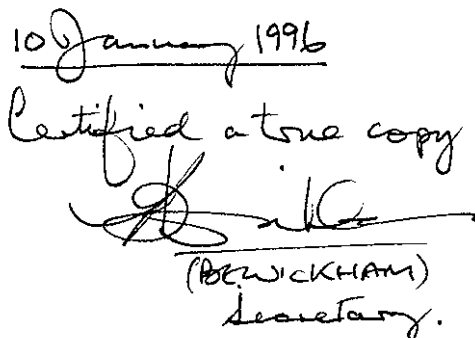 10 January 1996
Certified a true copy
(BEWICKHAM)
Secretary.